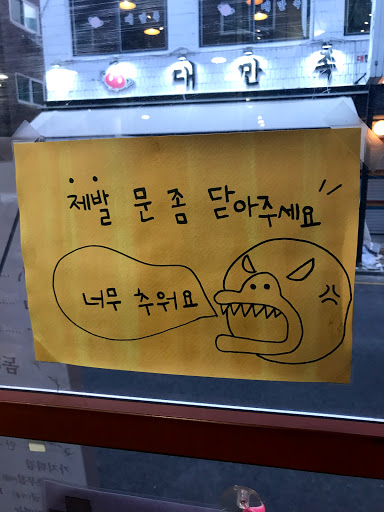 대관족
제발 문 좀 닫아주세요
너무 추워요